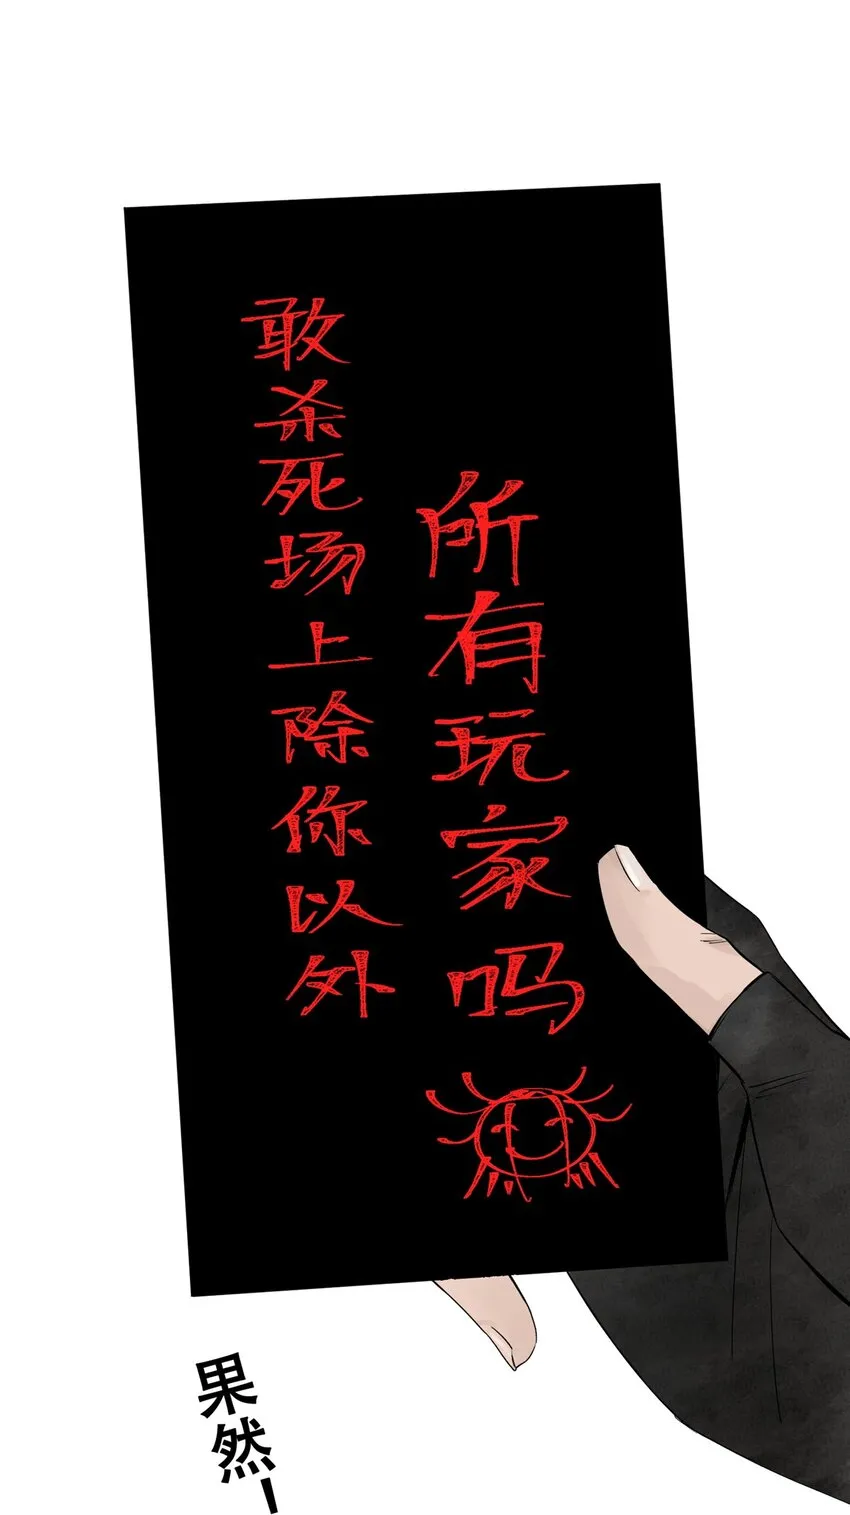 敢杀死场上除你以外
所有玩家吗
果然-